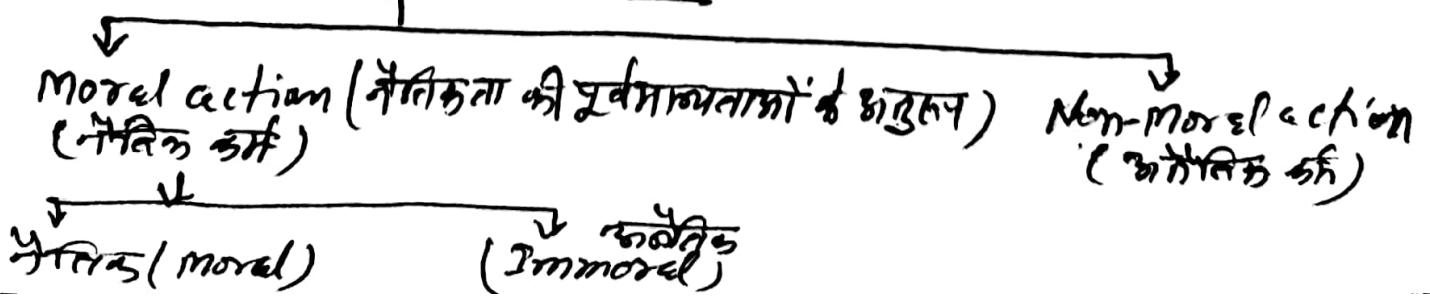 Moral action (नैतिकता की पूर्वमान्यताओं के अनुरूप) Non-Moral action
(नैतिक कर्म) (अनैतिक कर्म)
नैतिक (moral) (Immoral) अनैतिक